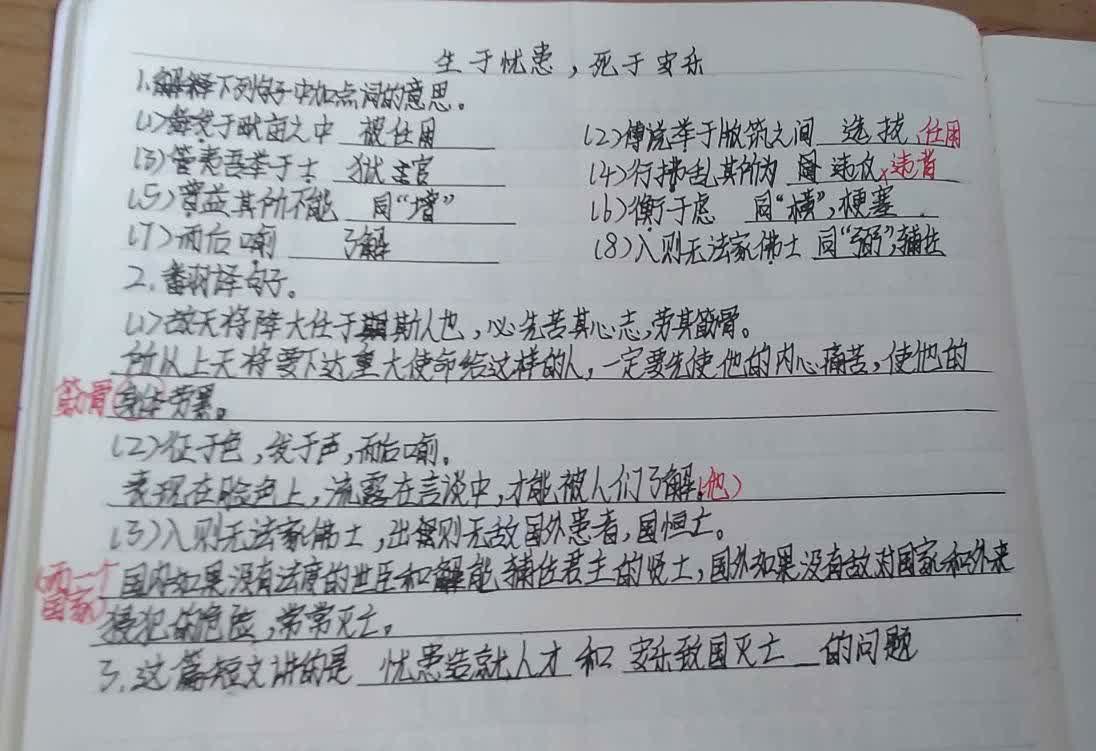 生于忧患，死于安乐
1.解释下列句子中加点词的意思。
(1)舜发于畎亩之中 被任用 (2)傅说举于版筑之间 选拔 任用
(3)管夷吾举于士 狱官 (4)行拂乱其所为 违 违背
(5)曾益其所不能 同“增” (6)衡于虑 同“横”，梗塞
(7)而后喻 了解 (8)入则无法家拂士 同“弼”，辅佐
2.翻译句子。
(1)故天将降大任于斯人也，必先苦其心志，劳其筋骨。
所以上天将要下达重大使命给这样的人，一定要先使他的内心痛苦，使他的
筋骨 身体劳累。
(2)征于色，发于声，而后喻。
表现在脸色上，流露在言谈中，才能被人们了解。（他）
(3)入则无法家拂士，出则无敌国外患者，国恒亡。
（而一个 国内如果没有法度的世臣和能辅佐君主的贤士，国外如果没有敌对国家和外来
国家） 侵犯的危险，常常灭亡。
3.这篇短文讲的是 忧患造就人才 和 安乐致国灭亡 的问题